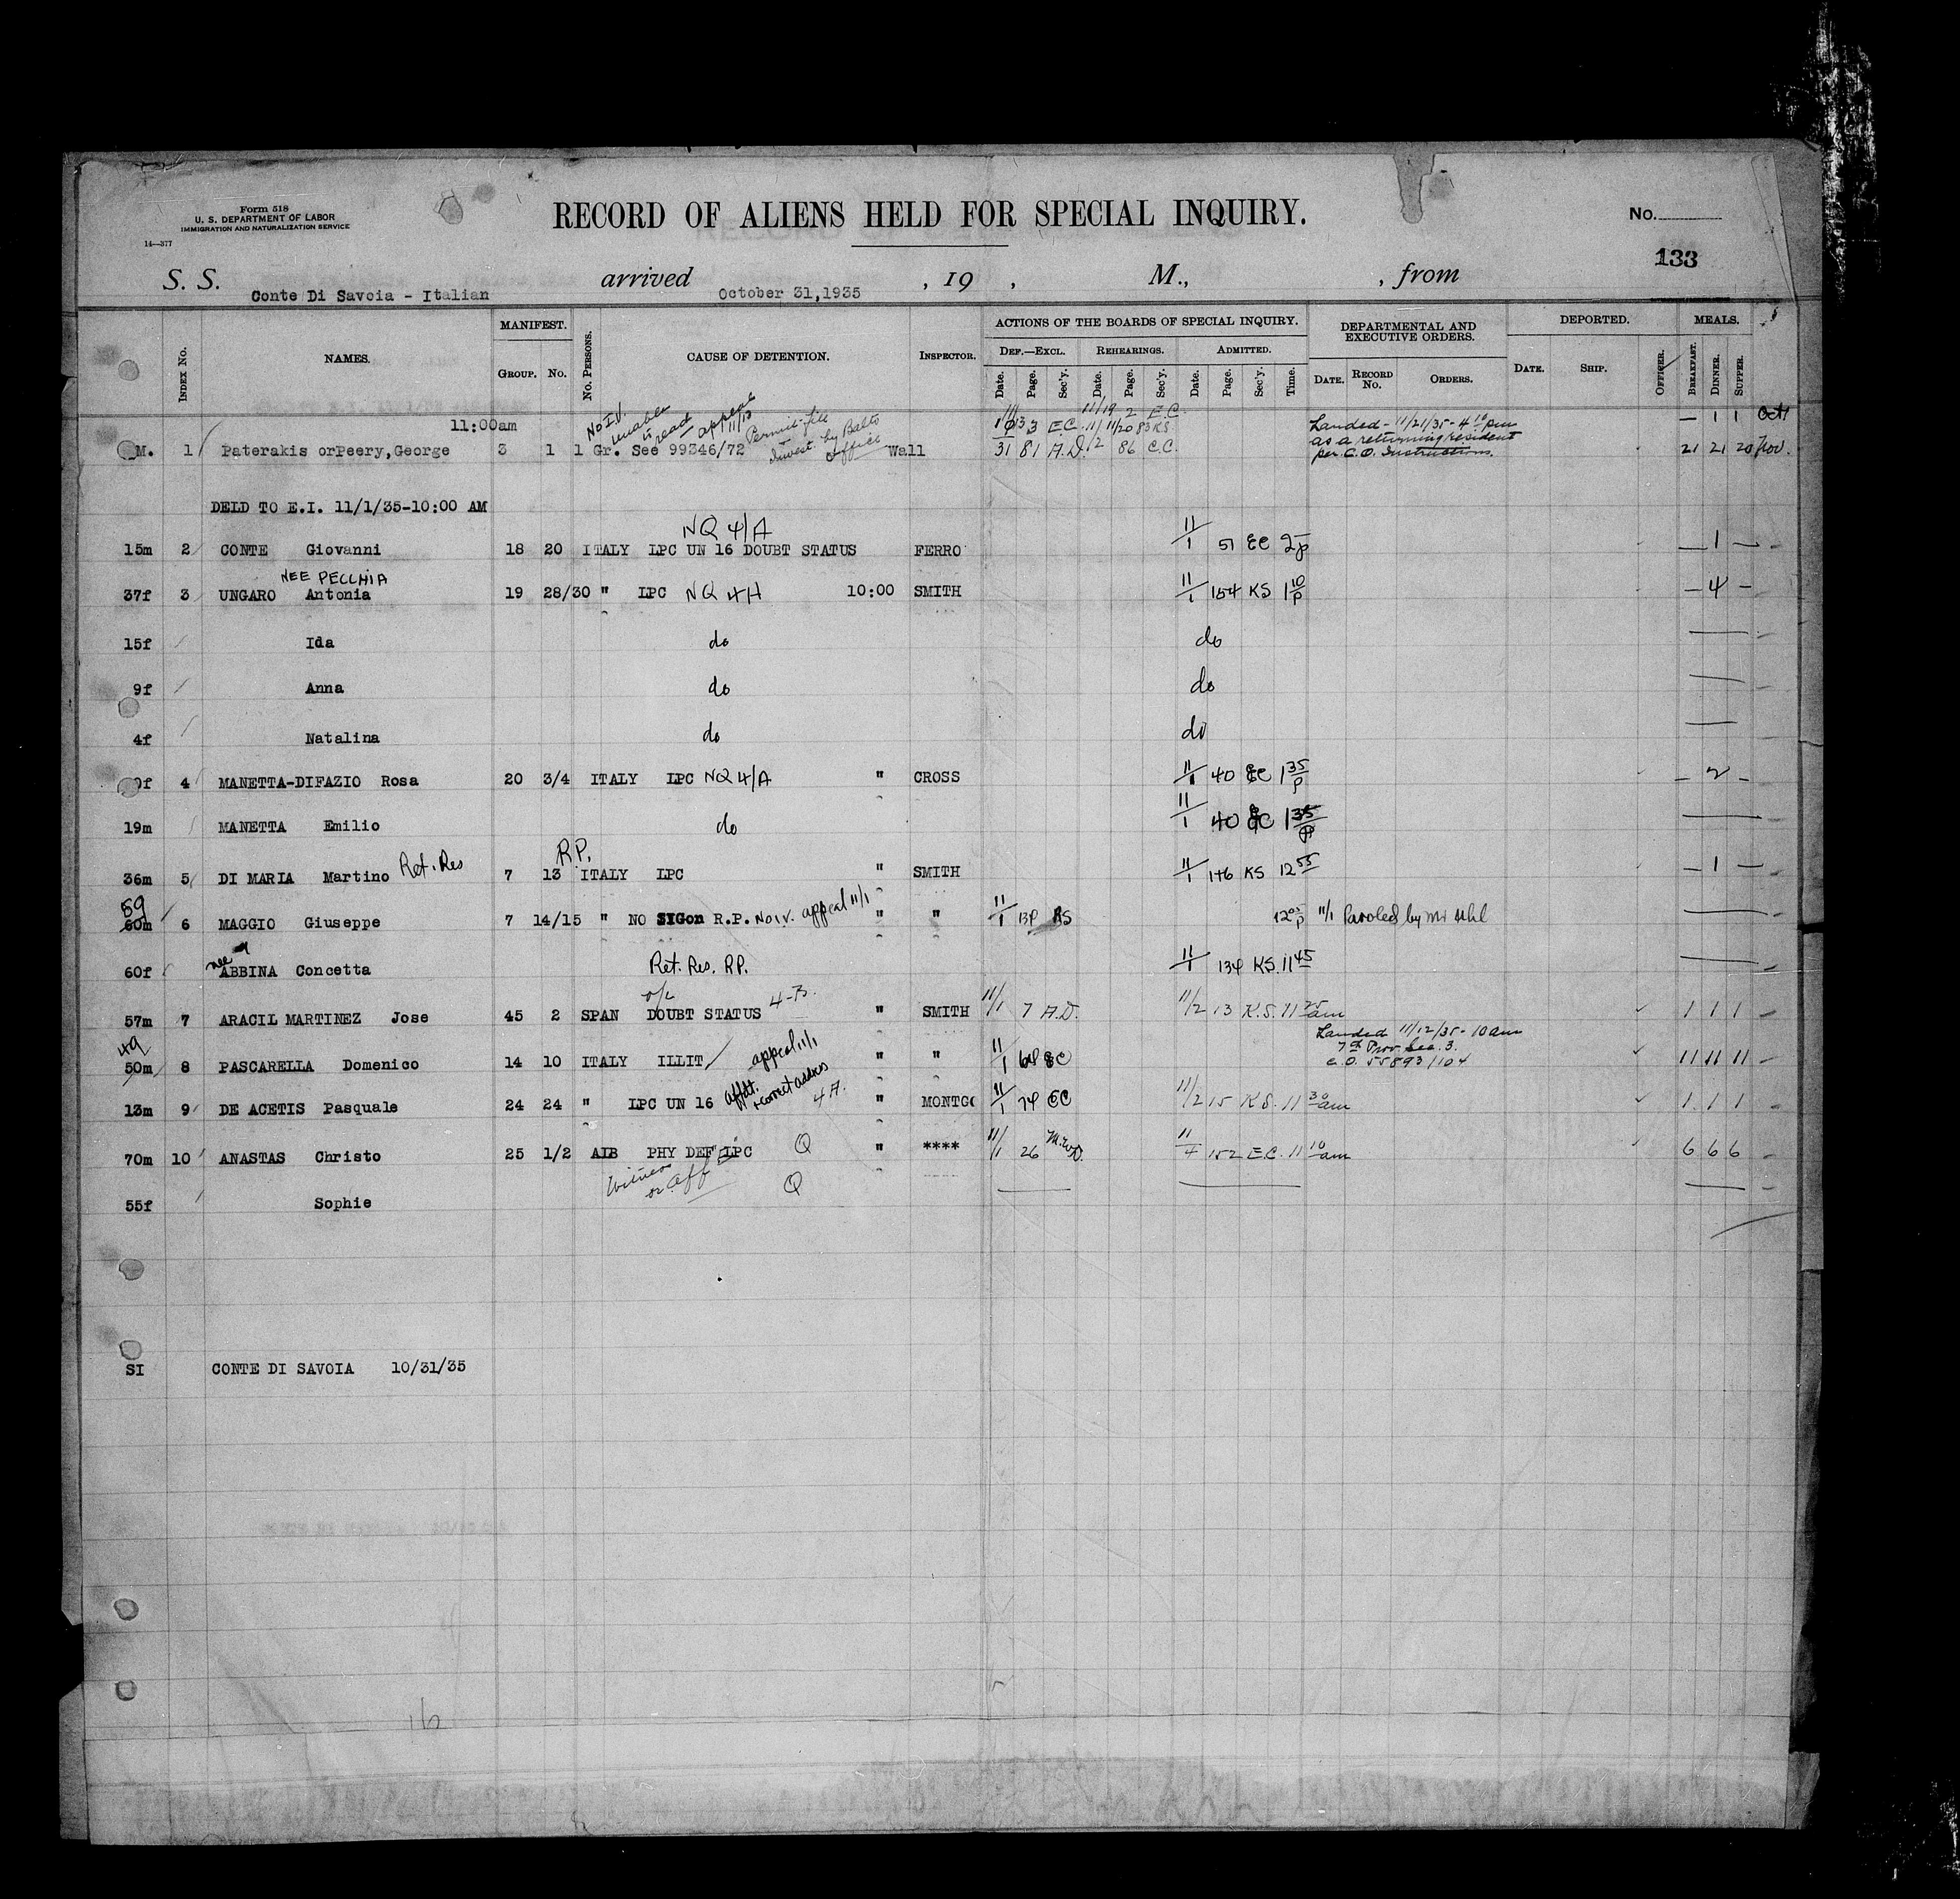 Form 518
U. S. DEPARTMENT OF LABOR
IMMIGRATION AND NATURALIZATION SERVICE
14—377
RECORD OF ALIENS HELD FOR SPECIAL INQUIRY.
No.
133
S. S. Conte Di Savoia - Italian arrived October 31,1935 , 19 , M., , from
INDEX No. NAMES. MANIFEST. GROUP. No. No. PERSONS. CAUSE OF DETENTION. INSPECTOR. ACTIONS OF THE BOARDS OF SPECIAL INQUIRY. DEF.—EXCL. Date. Page. Sec'y. REHEARINGS. Date. Page. Sec'y. ADMITTED. Date. Page. Sec'y. Time. DEPARTMENTAL AND EXECUTIVE ORDERS. DATE. RECORD No. ORDERS. DEPORTED. DATE. SHIP. OFFICER. MEALS. BREAKFAST. DINNER. SUPPER.
11:00am No I.V. unable to read appeal 11/13 Permit-file Invest. by Balto office 11/13 3 E.C. 11/19 2 E.C. 11/20 83 K.S. Landed - 11/21/35 - 4 10 pm — 1 1 Oct
as a returning resident
M. 1 Paterakis orPeery,George 3 1 1 Gr. See 99346/72 Wall 31 81 A.D. 86 C.C. per C.O. Instructions. 21 21 20 Nov.
DELD TO E.I. 11/1/35-10:00 AM
NQ 4/A
15m 2 CONTE Giovanni 18 20 ITALY LPC UN 16 DOUBT STATUS FERRO 11/1 51 EC 2p — 1 —
NEE PECCHIA
37f 3 UNGARO Antonia 19 28/30 " LPC NQ 4H 10:00 SMITH 11/1 154 KS 1 10 p — 4 —
15f Ida do do
9f Anna do do
4f Natalina do do
0f 4 MANETTA-DIFAZIO Rosa 20 3/4 ITALY LPC NQ 4/A " CROSS 11/1 40 EC 1 35 p — 2 —
19m MANETTA Emilio do 11/1 40 EC 1 35 p
R.P.
36m 5 DI MARIA Martino Ret. Res 7 13 ITALY LPC " SMITH 11/1 146 KS 12 55 — 1 —
59
60m 6 MAGGIO Giuseppe 7 14/15 " NO SIGon R.P. No I.V. appeal 11/1 " " 11/1 134 KS 12 05 p 11/1 Paroled by Mr Uhl
nee
60f ABBINA Concetta Ret. Res. R.P. 11/1 134 KS. 11 45
57m 7 ARACIL MARTINEZ Jose 45 2 SPAN DOUBT STATUS 4-B. " SMITH 11/1 7 A.D. 11/2 13 K.S. 11 25 am 1 1 1
Landed 11/12/35 - 10am
49 7th Prov. Sec. 3.
50m 8 PASCARELLA Domenico 14 10 ITALY ILLIT appeal 11/1 " " 11/1 EC C.O. 55893/104 11 11 11
13m 9 DE ACETIS Pasquale 24 24 " LPC UN 16 affdt. + correct address 4 A. " MONTGO 11/1 74 EC 11/2 15 K.S. 11 30 am 1 1 1
70m 10 ANASTAS Christo 25 1/2 ALB PHY DEF LPC Q " **** 11/1 26 M.W.D. 11/4 152 E.C. 11 10 am 6 6 6
Witness or aff Q
55f Sophie
SI CONTE DI SAVOIA 10/31/35
16